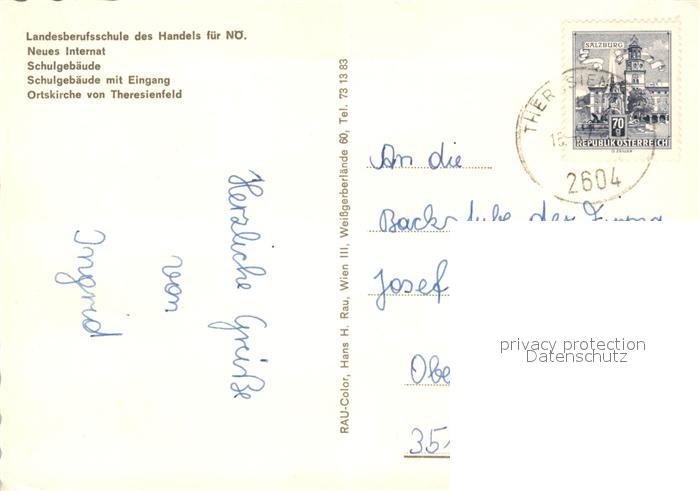 Landesberufsschule des Handels für NÖ.
Neues Internat
Schulgebäude
Schulgebäude mit Eingang
Ortskirche von Theresienfeld
RAU-Color, Hans H. Rau, Wien III, Weißgerberlände 60, Tel. 73 13 83
Herzliche Grüße
von
Ingrid
SALZBURG
70
g
REPUBLIK ÖSTERREICH
THERESIEN
2604
An die
der Firma
Josef
Obe
35
privacy protection
Datenschutz